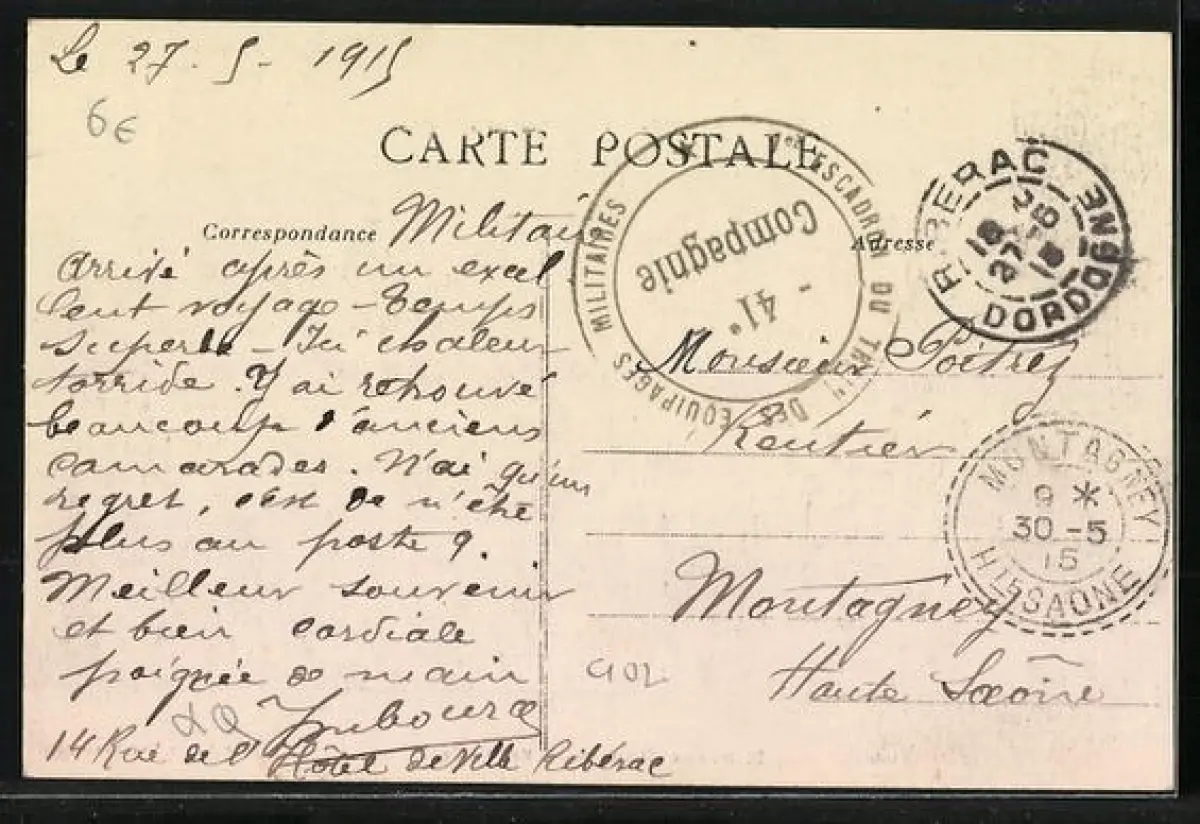 Le 27 - 5 - 1915
6€
CARTE POSTALE
Correspondance
Militaire
Adresse
arrivé après un excel
lent voyage - temps
superbe - Ici chaleur
torride. J'y ai retrouvé
beaucoup d'anciens
camarades. N'ai qu'un
regret, c'est de n'être
plus au poste 9.
Meilleur souvenir
et bien cordiale
poignée de main
14 Rue de l'Hôtel de Ville Ribérac
Monsieur
Rentier
Montagney
Haute Saône
ESCADRON DU TRAIN DES ÉQUIPAGES MILITAIRES
41e
Compagnie
RIBERAC
DORDOGNE
MONTAGNEY
9 *
30 -5
15
HTE SAONE